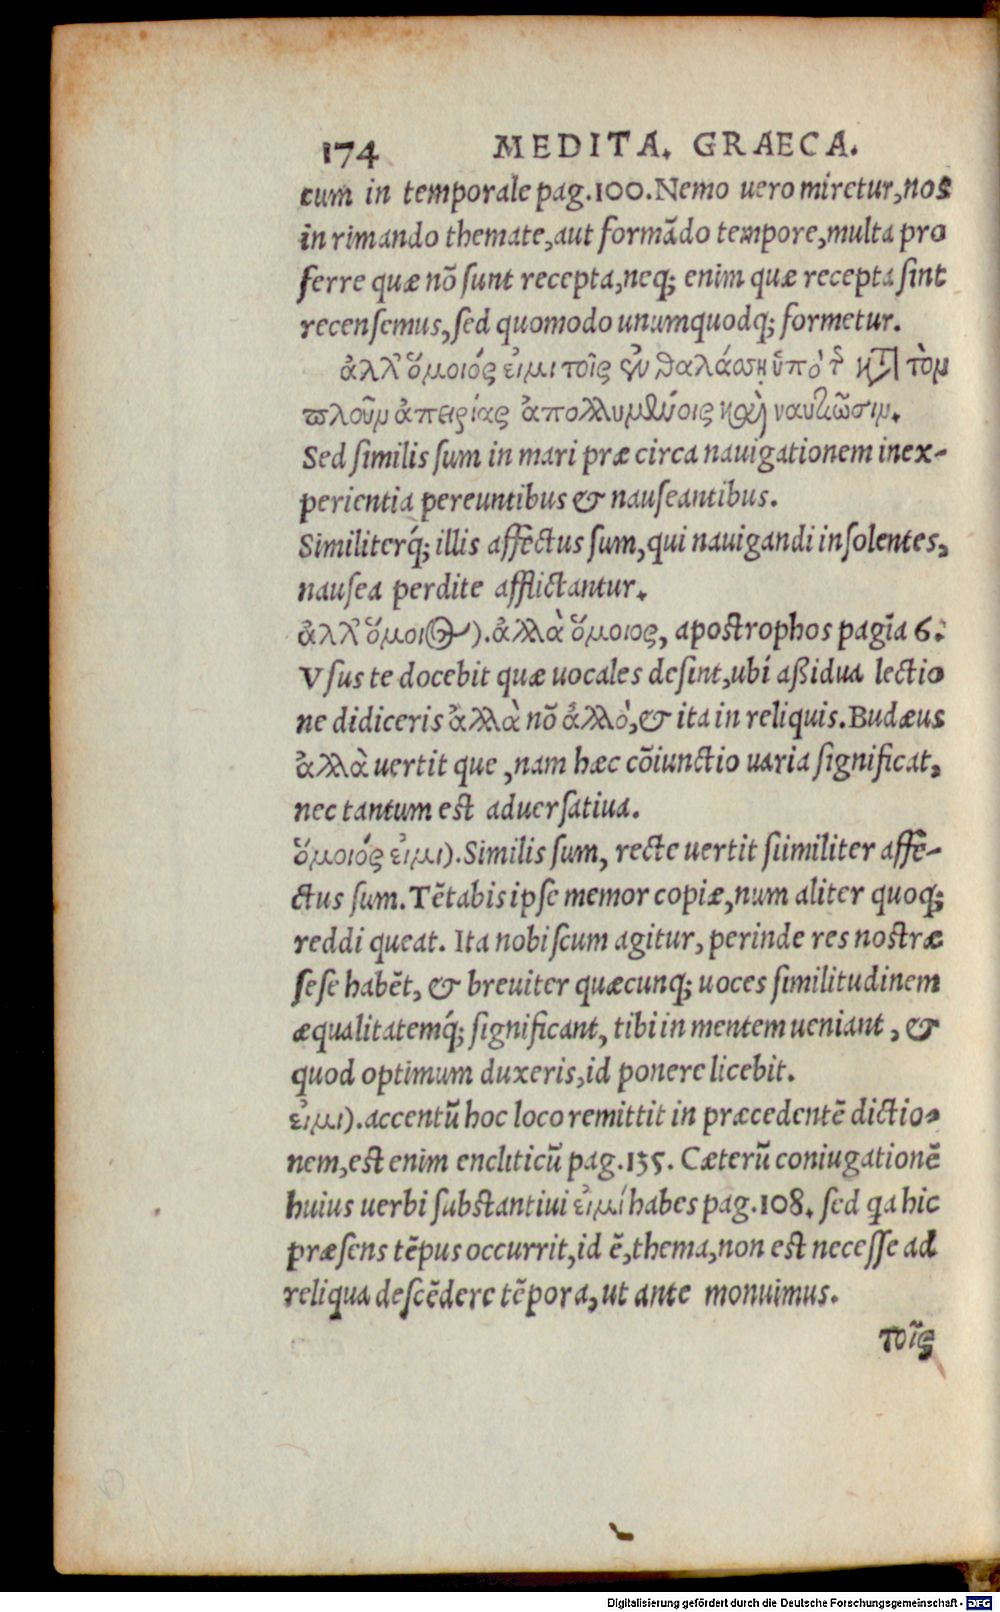 174 MEDITA. GRAECA.
cum in temporale pag.100. Nemo uero miretur, nos
in rimando themate, aut formādo tempore, multa pro
ferre quæ nō sunt recepta, neq; enim quæ recepta sint
recensemus, sed quomodo unumquodq; formetur.
ἀλλ᾽ ὅμοιός εἰμι τοῖς ἐν θαλάσσῃ ὑπὸ τῆς κατὰ τὸν
πλοῦν ἀπειρίας ἀπολλυμένοις καὶ ναυτιῶσιν.
Sed similis sum in mari præ circa nauigationem inex-
perientia pereuntibus & nauseantibus.
Similiterq́; illis affectus sum, qui nauigandi insolentes,
nausea perdite afflictantur.
ἀλλ᾽ ὅμοιος). ἀλλὰ ὅμοιος, apostrophos pagīa 6.
Vsus te docebit quæ uocales desint, ubi aßidua lectio
ne didiceris ἀλλὰ nō ἀλλὸ, & ita in reliquis. Budæus
ἀλλὰ uertit que, nam hæc cōiunctio uaria significat,
nec tantum est aduersatiua.
ὅμοιός εἰμι). Similis sum, recte uertit siimiliter affē-
ctus sum. Tētabis ipse memor copiæ, num aliter quoq;
reddi queat. Ita nobiscum agitur, perinde res nostræ
sese habēt, & breuiter quæcunq; uoces similitudinem
æqualitatemq́; significant, tibi in mentem ueniant, &
quod optimum duxeris, id ponere licebit.
εἰμι). accentū hoc loco remittit in præcedentē dictio-
nem, est enim encliticū pag.135. Cæterū coniugationē
huius uerbi substantiui εἰμί habes pag.108. sed qa hic
præsens tēpus occurrit, id ē, thema, non est necesse ad
reliqua descēdere tēpora, ut ante monuimus.
τοῖς
Digitalisierung gefördert durch die Deutsche Forschungsgemeinschaft - DFG